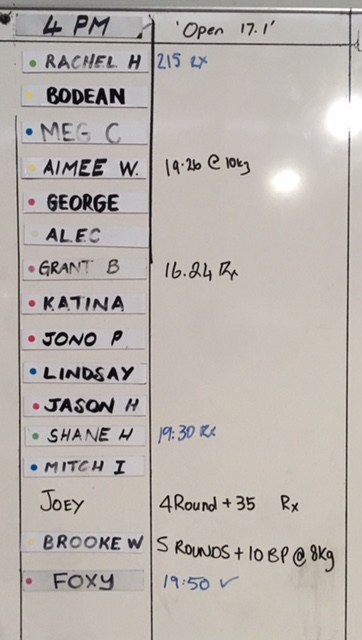 4 PM 'Open 17.1'
RACHEL H 215 Rx
BODEAN
MEG C
AIMEE W. 19.26 @ 10kg
GEORGE
ALEC
GRANT B 16.24 Rx
KATINA
JONO P
LINDSAY
JASON H
SHANE H 19:30 Rx
MITCH I
JOEY 4Round + 35 Rx
BROOKE W 5 ROUNDS + 10 BP @ 8kg
FOXY 19:50 ✓